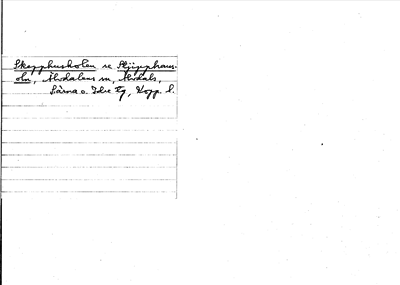 Skepphusholen se Skjipphaus-
oln, Älvdalens sn, Älvdals,
Särna o. Idre tg, Kopp. l.